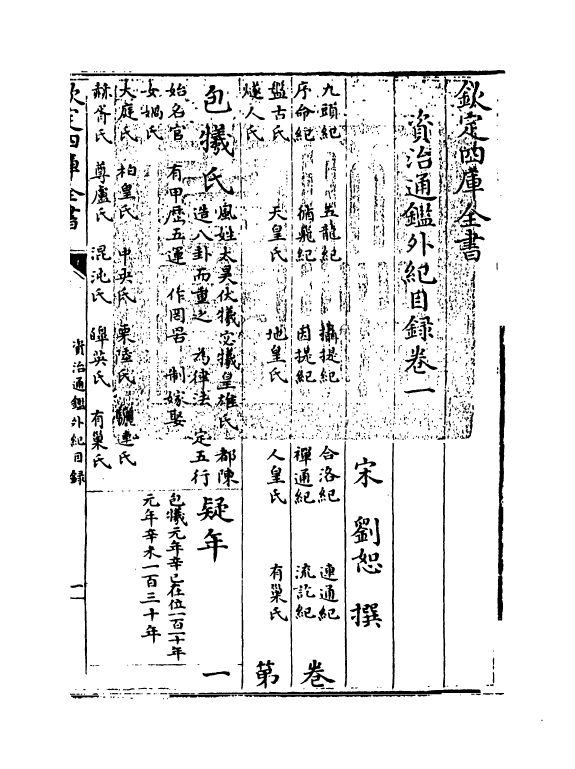 欽定四庫全書
資治通鑑外紀目録卷一
宋　劉恕　撰
九頭紀　五龍紀　攝提紀　合洛紀　連通紀
序命紀　循蜚紀　因提紀　禪通紀　流訖紀
盤古氏　天皇氏　地皇氏　人皇氏　有巢氏
燧人氏
卷第一
包犧氏　風姓太昊伏犧宓犧皇雄氏　都陳
造八卦而重之　為律法　定五行
始名官　有甲歴五運　作罔罟　制嫁娶
疑年
包犧元年辛巳在位一百一十年
元年辛未一百三十年
女媧氏
大庭氏　柏皇氏　中央氏　栗陸氏　驪連氏
赫胥氏　尊盧氏　混沌氏　皥英氏　有巢氏
欽定四庫全書
資治通鑑外紀目録
一